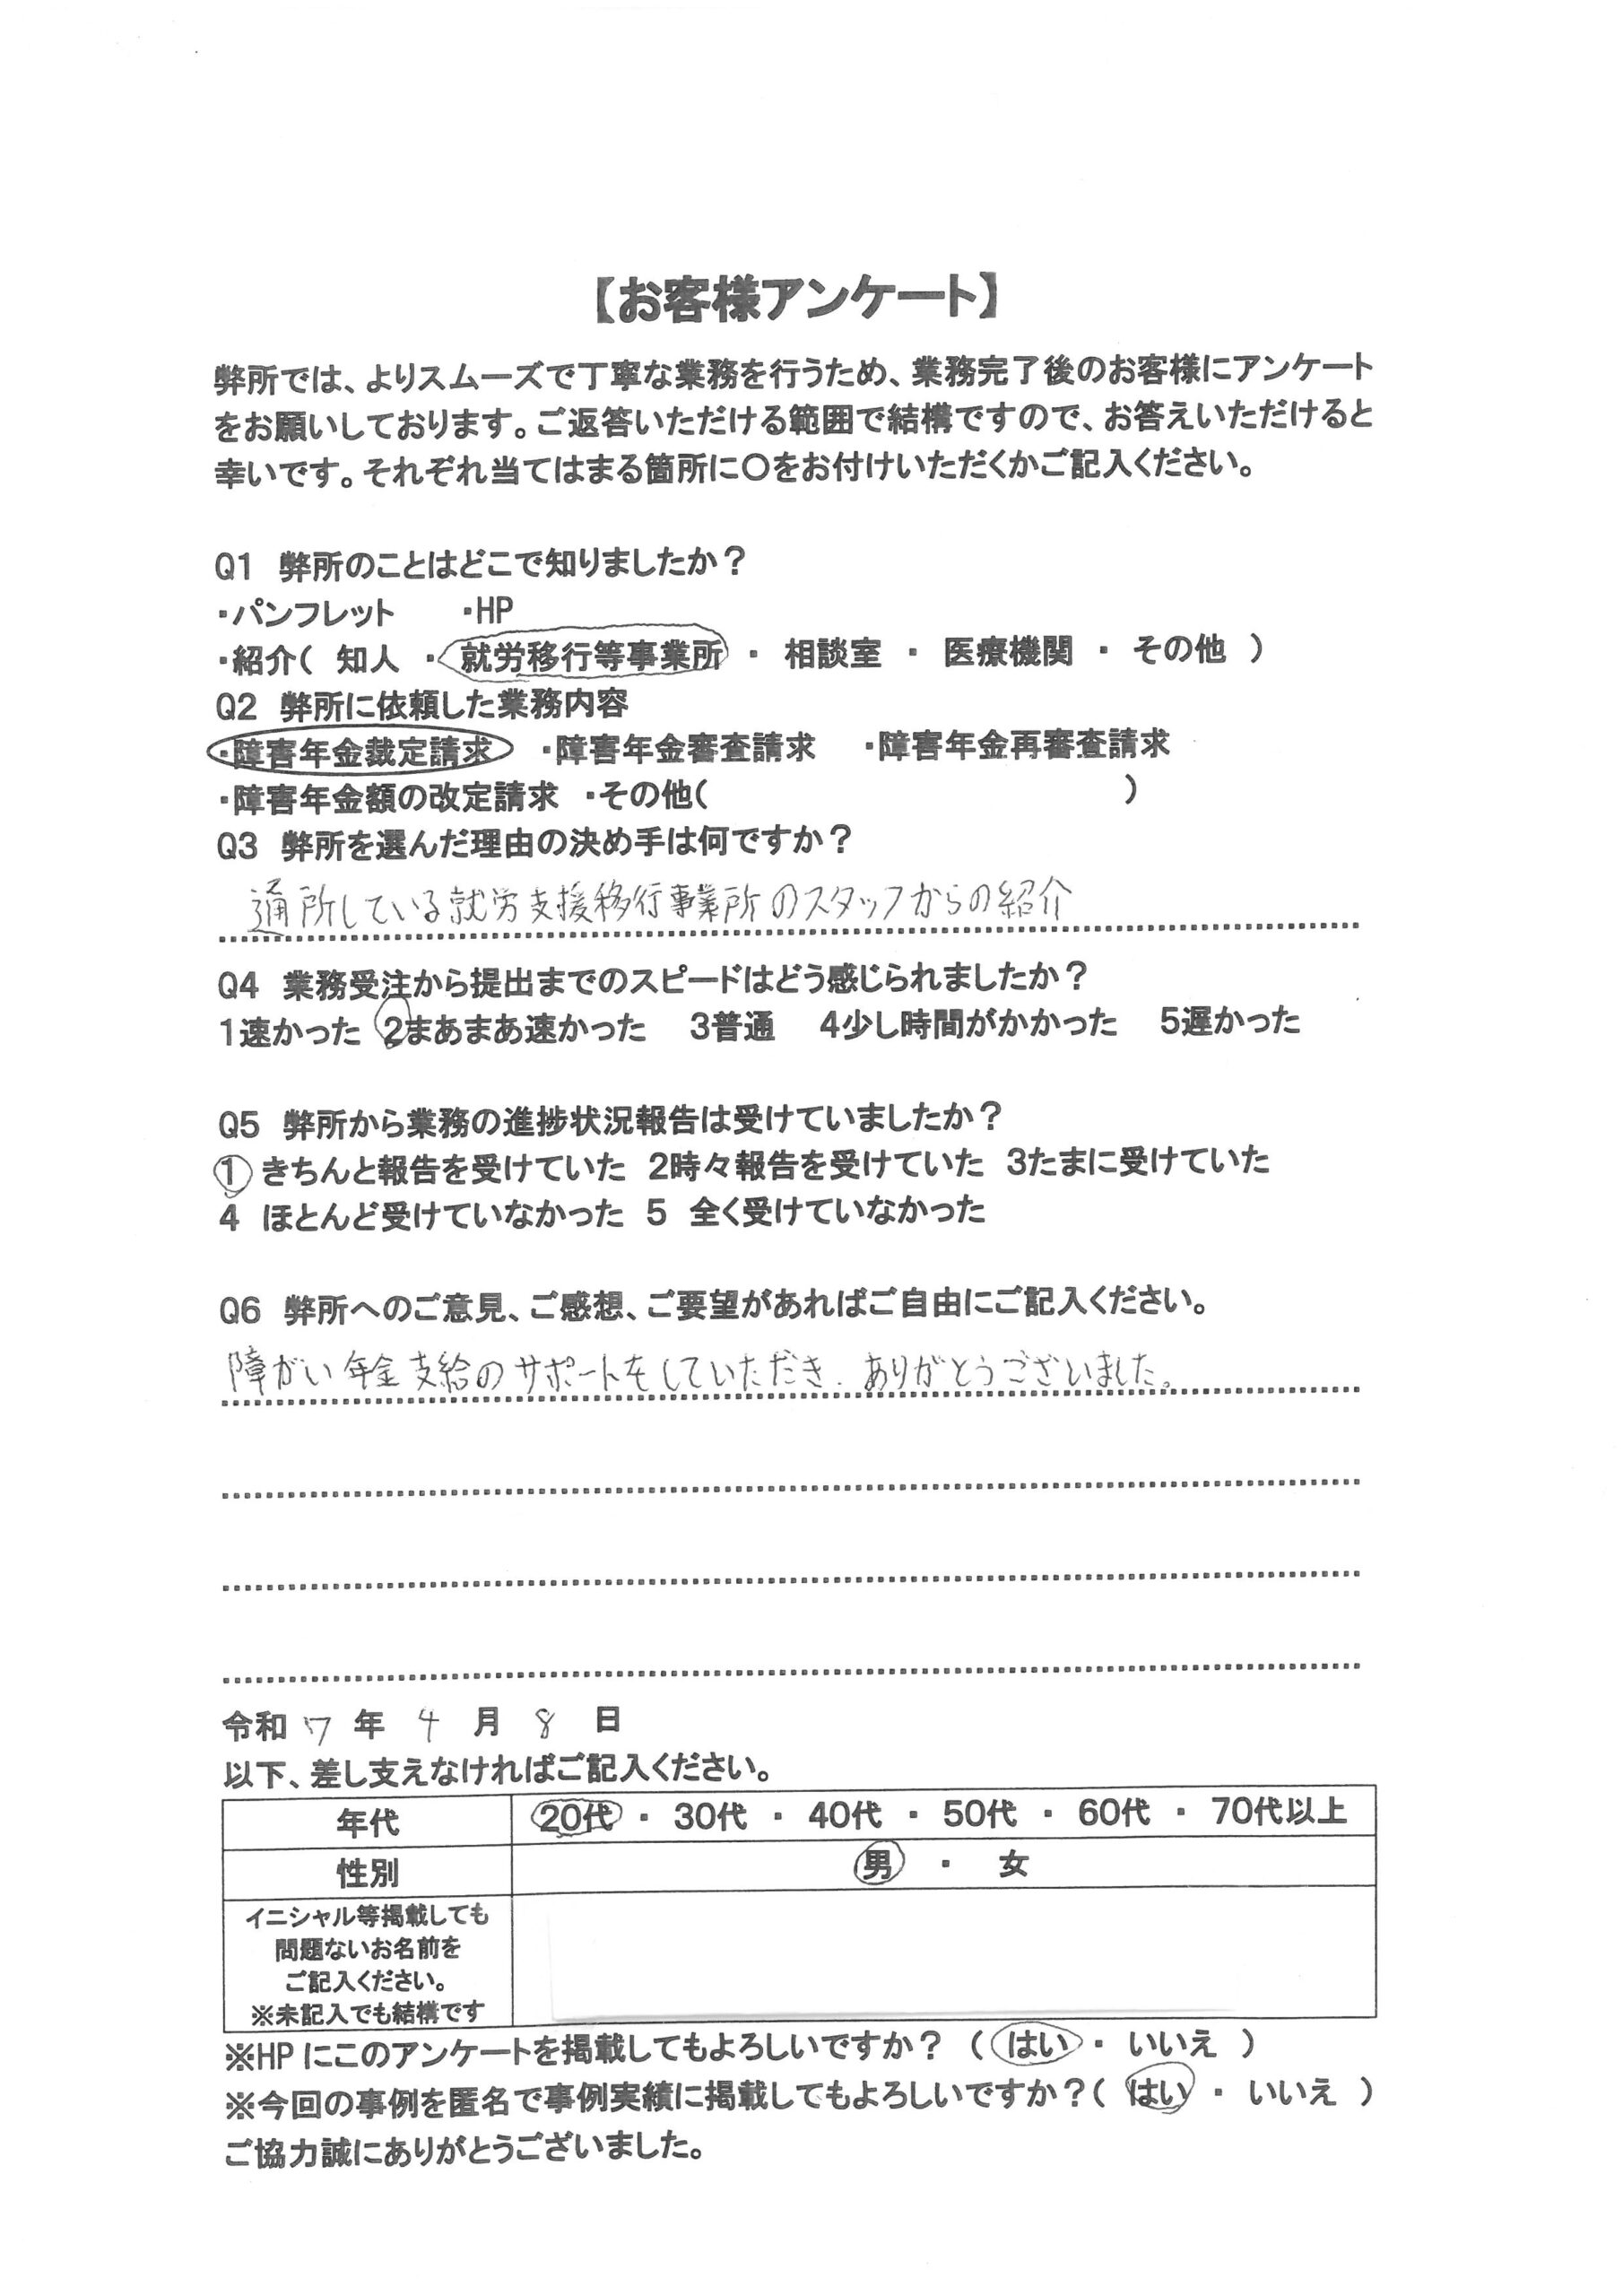 【お客様アンケート】
弊所では、よりスムーズで丁寧な業務を行うため、業務完了後のお客様にアンケート
をお願いしております。ご返答いただける範囲で結構ですので、お答えいただけると
幸いです。それぞれ当てはまる箇所に〇をお付けいただくかご記入ください。
Q1 弊所のことはどこで知りましたか？
・パンフレット ・HP
・紹介( 知人 ・ 就労移行等事業所 ・ 相談室 ・ 医療機関 ・ その他 )
Q2 弊所に依頼した業務内容
・障害年金裁定請求 ・障害年金審査請求 ・障害年金再審査請求
・障害年金額の改定請求 ・その他( )
Q3 弊所を選んだ理由の決め手は何ですか？
通所している就労支援移行事業所のスタッフからの紹介
Q4 業務受注から提出までのスピードはどう感じられましたか？
1速かった 2まあまあ速かった 3普通 4少し時間がかかった 5遅かった
Q5 弊所から業務の進捗状況報告は受けていましたか？
1 きちんと報告を受けていた 2時々報告を受けていた 3たまに受けていた
4 ほとんど受けていなかった 5 全く受けていなかった
Q6 弊所へのご意見、ご感想、ご要望があればご自由にご記入ください。
障がい年金支給のサポートをしていただき、ありがとうございました。
令和 7 年 4 月 8 日
以下、差し支えなければご記入ください。
年代 20代 ・ 30代 ・ 40代 ・ 50代 ・ 60代 ・ 70代以上
性別 男 ・ 女
イニシャル等掲載しても
問題ないお名前を
ご記入ください。
※未記入でも結構です
※HPにこのアンケートを掲載してもよろしいですか？ ( はい ・ いいえ )
※今回の事例を匿名で事例実績に掲載してもよろしいですか？( はい ・ いいえ )
ご協力誠にありがとうございました。